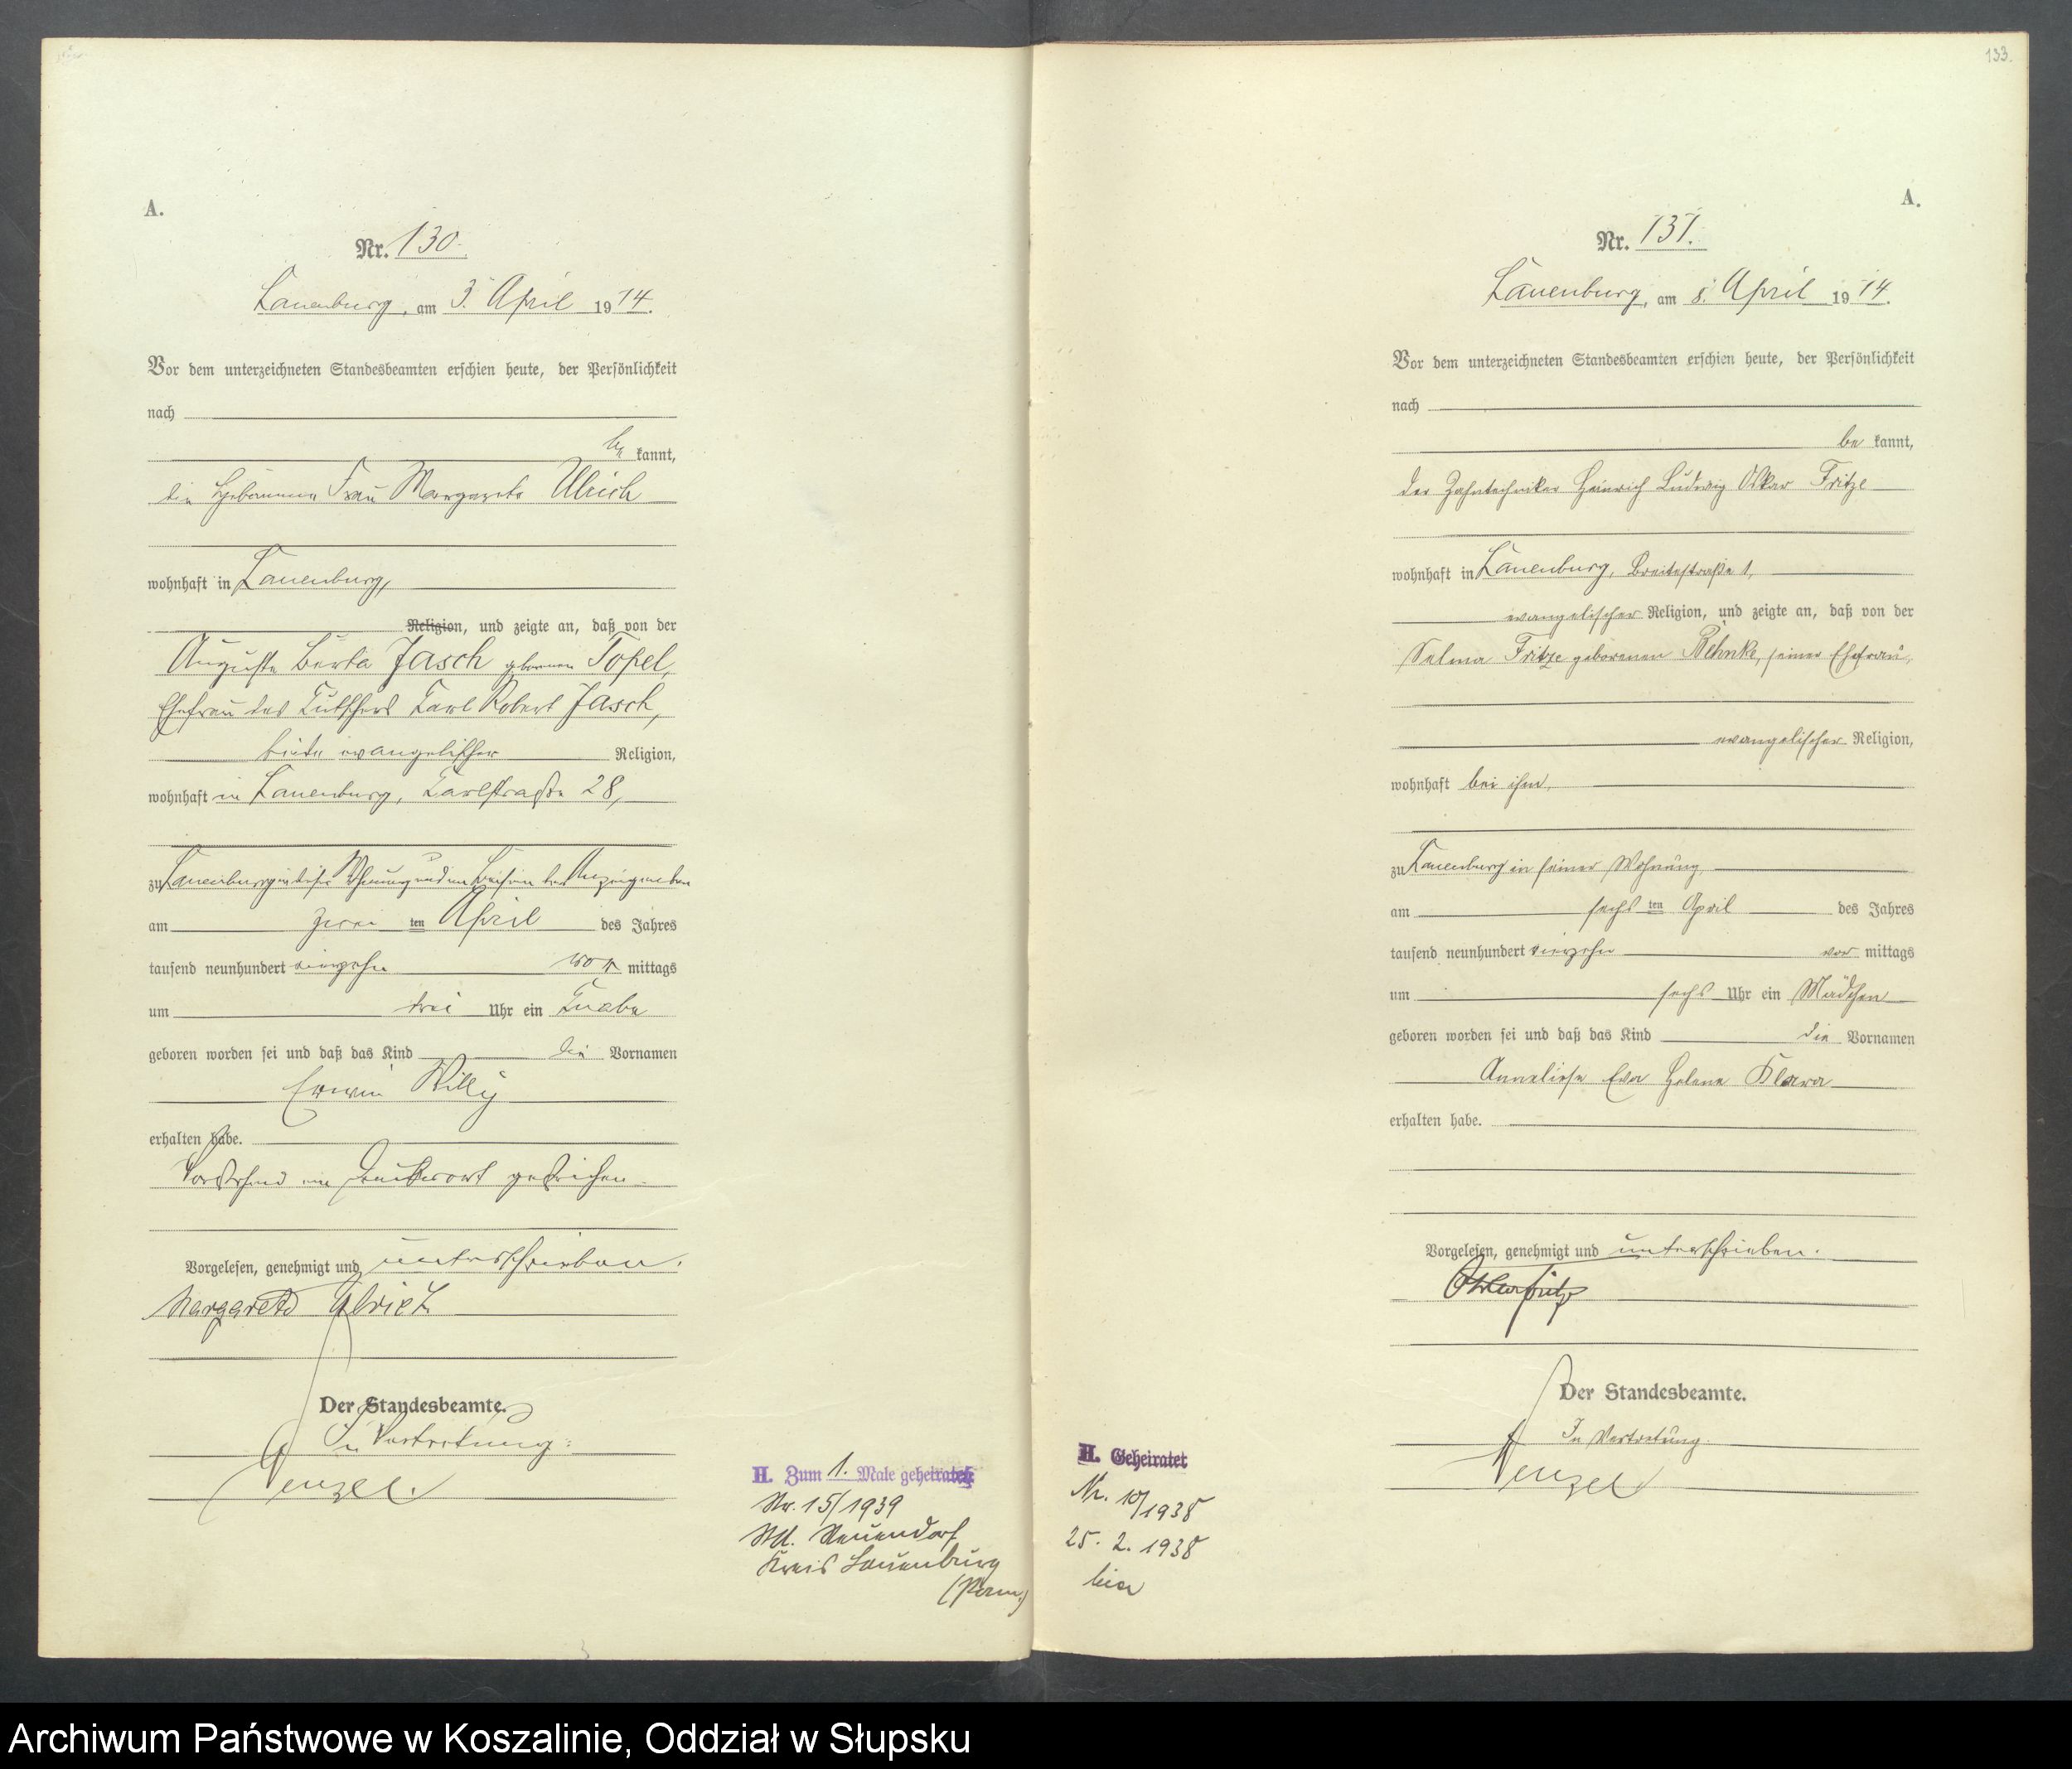 A.
Nr. 130.
Lauenburg, am 3. April 1914.
Vor dem unterzeichneten Standesbeamten erschien heute, der Persönlichkeit
nach
be kannt,
die Hebamme Frau Margarete Ulrich
wohnhaft in Lauenburg,
Religion, und zeigte an, daß von der
Auguste Berta Jasch geborenen Topel,
Ehefrau des Kutschers Karl Robert Jasch,
beide evangelischer Religion,
wohnhaft in Lauenburg, Karlstraße 28,
zu Lauenburg in dieser Wohnung und im Beisein der Anzeigenden
am zwei ten April des Jahres
tausend neunhundert vierzehn vor mittags
um drei Uhr ein Knabe
geboren worden sei und daß das Kind die Vornamen
Erwin Willy
erhalten habe.
Vorstehend ein Druckwort gestrichen.
Vorgelesen, genehmigt und unterschrieben.
Margarete Ulrich
Der Standesbeamte.
In Vertretung:
Wenzel.
H. Zum 1. Male geheiratet
Nr. 15/1939
StA. Neuendorf
Kreis Lauenburg
(Pom.)
133.
A.
Nr. 131.
Lauenburg, am 8. April 1914.
Vor dem unterzeichneten Standesbeamten erschien heute, der Persönlichkeit
nach
be kannt,
der Zahntechniker Heinrich Ludwig Oskar Fritze
wohnhaft in Lauenburg, Breitestraße 1,
evangelischer Religion, und zeigte an, daß von der
Selma Fritze geborenen Behnke, seiner Ehefrau,
evangelischer Religion,
wohnhaft bei ihm,
zu Lauenburg in seiner Wohnung
am sechs ten April des Jahres
tausend neunhundert vierzehn vor mittags
um sechs Uhr ein Mädchen
geboren worden sei und daß das Kind die Vornamen
Anneliese Eva Helene Klara
erhalten habe.
Vorgelesen, genehmigt und unterschrieben.
Oskar Fritze
Der Standesbeamte.
In Vertretung.
Wenzel
H. Geheiratet
Nr. 10/1938
25. 2. 1938
hier
Archiwum Państwowe w Koszalinie, Oddział w Słupsku